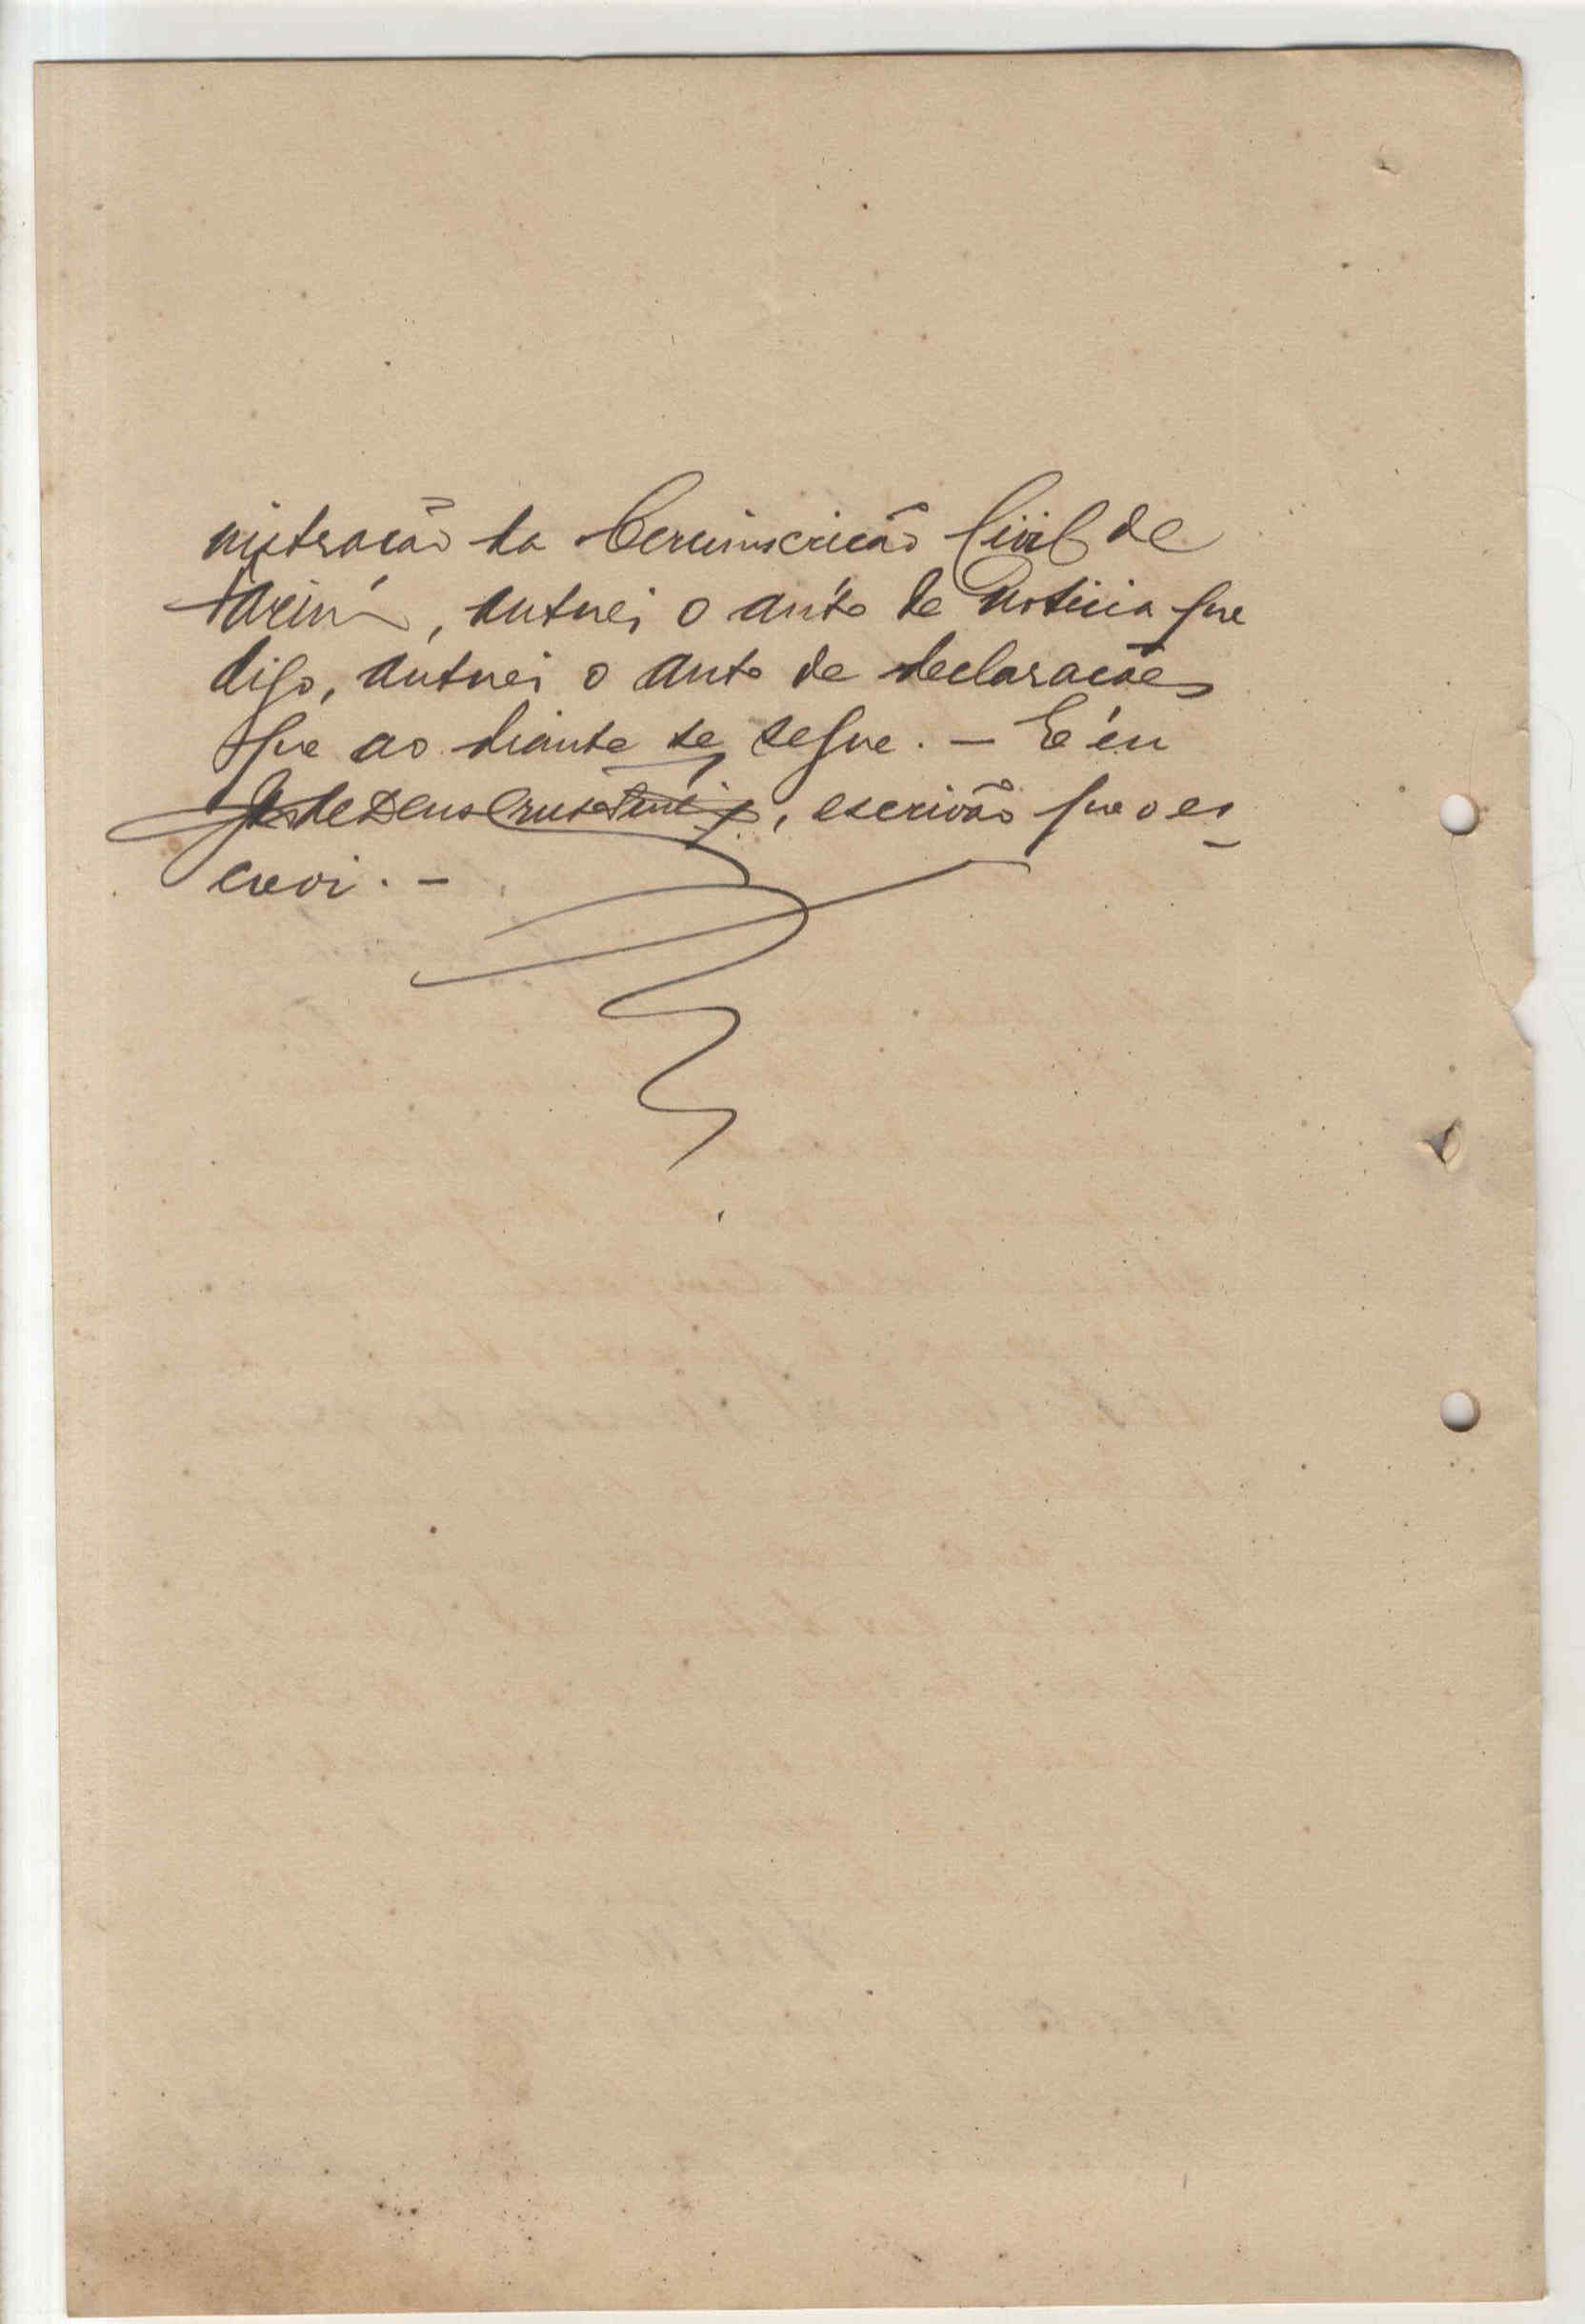 nistração da Cercunscrição Civil de
Farim, autuei o auto de noticia que
digo, autuei o auto de declarações
que ao diante se segue. — E eu
de Deus Crus, escrivão que o es-
crevi. —